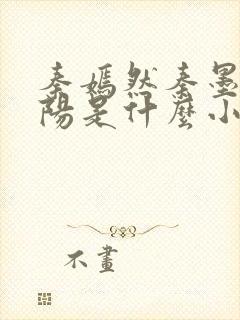 秦嫣然秦墨
陽是什麼小
不畫